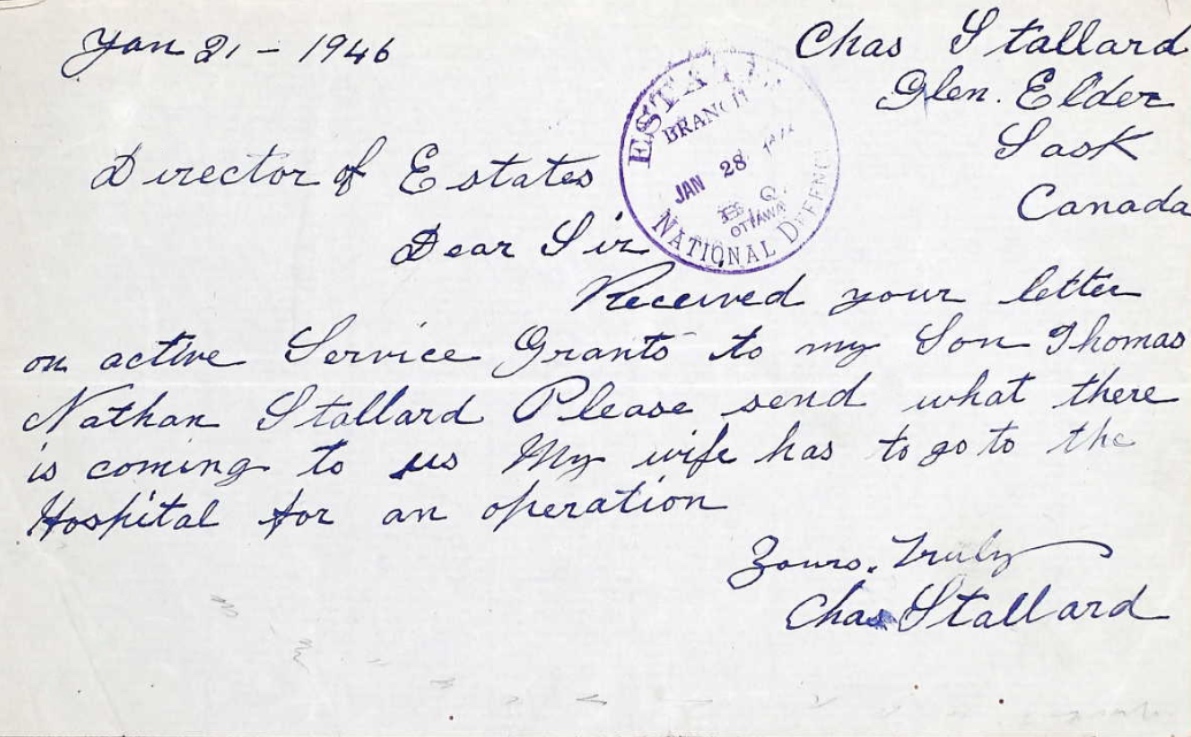 Jan 21 - 1946
Chas Stallard
Glen. Elder
Sask
Canada
ESTATES
BRANCH
JAN 28
OTTAWA
NATIONAL DEFENCE
Director of Estates
Dear Sir
Received your letter
on active Service Grants to my Son Thomas
Nathan Stallard Please send what there
is coming to us My wife has to go to the
Hospital for an operation
Yours. Truly
Chas Stallard